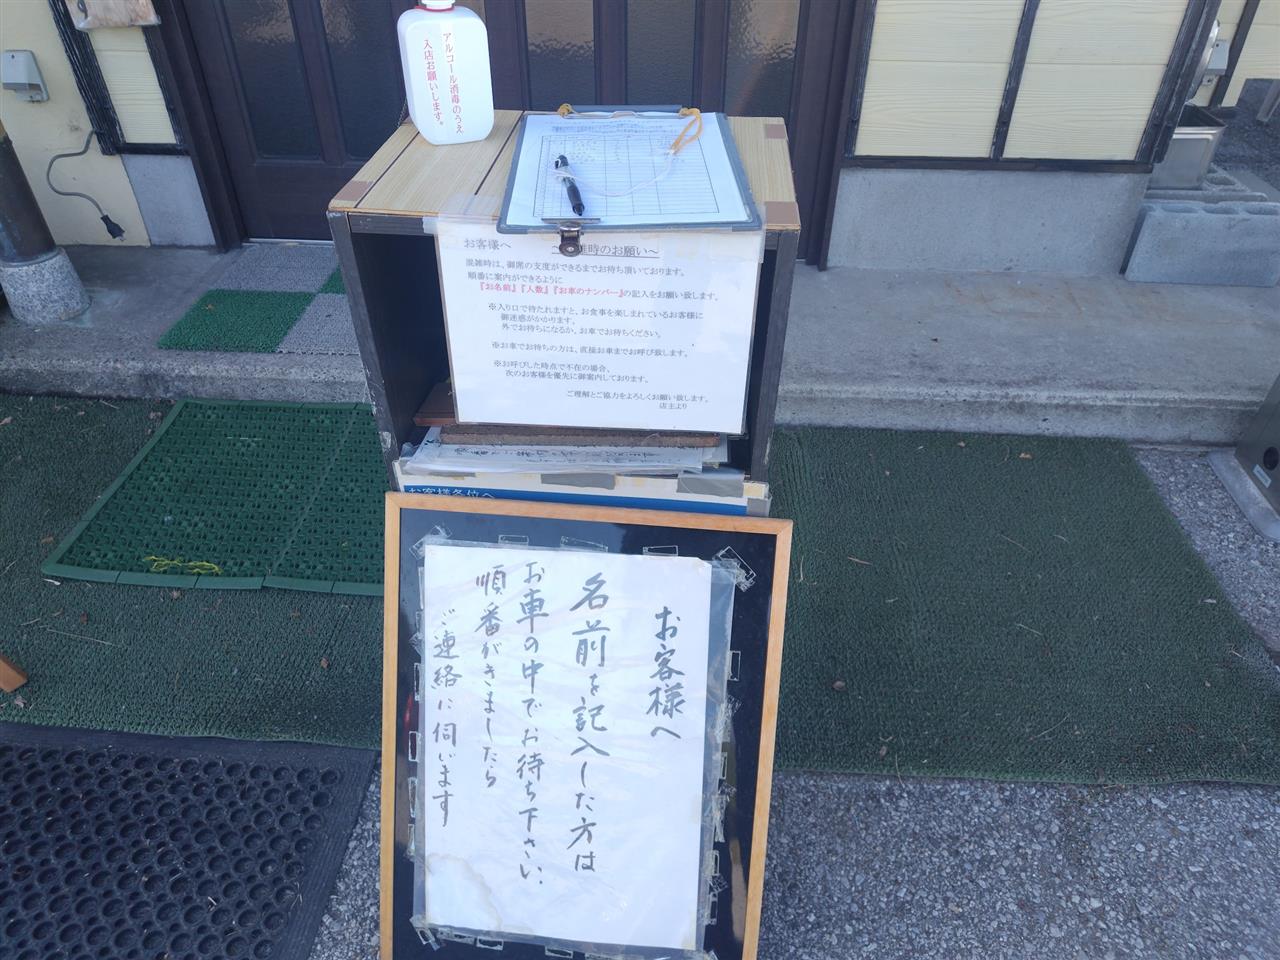 アルコール消毒のうえ
入店お願いします。
お客様へ
時のお願い～
混雑時は、御席の支度ができるまでお待ち頂いております。
順番に案内ができるように
『お名前』『人数』『お車のナンバー』の記入をお願い致します。
※入り口で待たれますと、お食事を楽しまれているお客様に
御迷惑がかかります。
外でお待ちになるか、お車でお待ちください。
※お車でお待ちの方は、直接お車までお呼び致します。
※お呼びした時点で不在の場合、
次のお客様を優先に御案内しております。
ご理解とご協力をよろしくお願い致します。
店主より
お客様各位へ
お客様へ
名前を記入した方は
お車の中でお待ち下さい.
順番がきましたら
ご連絡に伺います